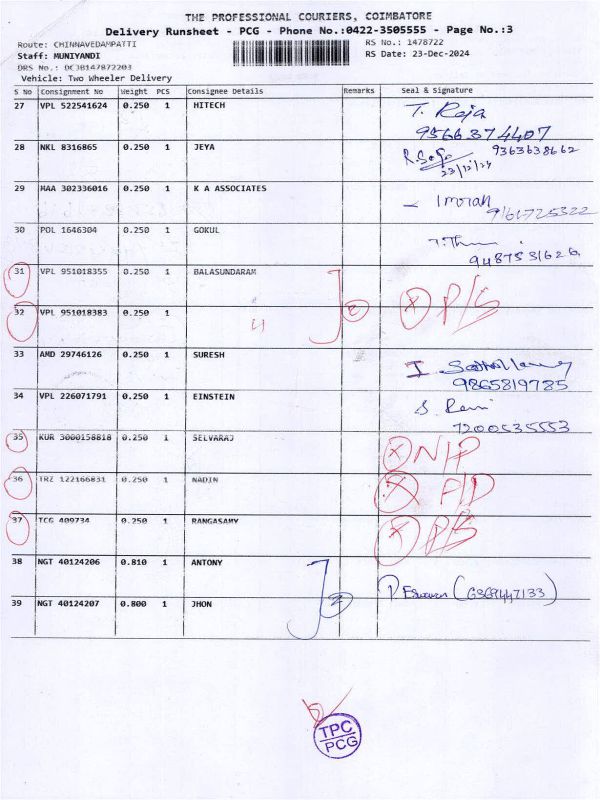 THE PROFESSIONAL COURIERS, COIMBATORE
Delivery Runsheet - PCG - Phone No.:0422-3505555 - Page No.:3
Route: CHINNAVEDAMPATTI RS No.: 1478722
Staff: MUNIYANDI RS Date: 23-Dec-2024
DRS No.: DCJB147872203
Vehicle: Two Wheeler Delivery
S No Consignment No Weight PCS Consignee Details Remarks Seal & Signature
27 VPL 522541624 0.250 1 HITECH T. Raja
9566374407
28 NKL 8316865 0.250 1 JEYA 9363638662
23/12/24
29 MAA 302336016 0.250 1 K A ASSOCIATES Imran
30 POL 1646304 0.250 1 GOKUL
9487531626
31 VPL 951018355 0.250 1 BALASUNDARAM
32 VPL 951018383 0.250 1 2 X P/S
33 AMD 29746126 0.250 1 SURESH
9865819785
34 VPL 226071791 0.250 1 EINSTEIN S. Ravi
7200535553
35 KUR 3000158818 0.250 1 SELVARAJ X N/P
36 TRZ 122166831 0.250 1 NADIN X
37 TCG 409734 0.250 1 RANGASAMY X
38 NGT 40124206 0.810 1 ANTONY
2 (6369447133)
39 NGT 40124207 0.800 1 JHON
TPC
PCG